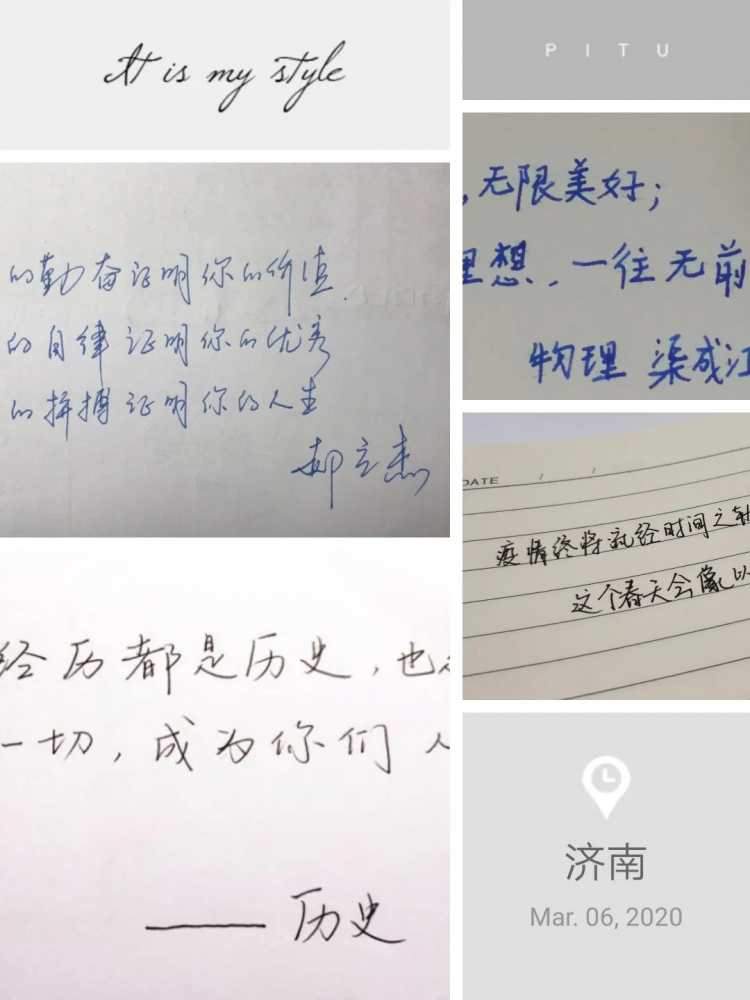 It is my style
PITU
的勤奋证明你的价值.
的自律证明你的优秀
的拼搏证明你的人生
郝立杰
,无限美好;
理想,一往无前
物理 渠成江
DATE / /
疫情终将就经时间之
这个春天会像以
经历都是历史,也
一切,成为你们人
——历史
济南
Mar. 06, 2020